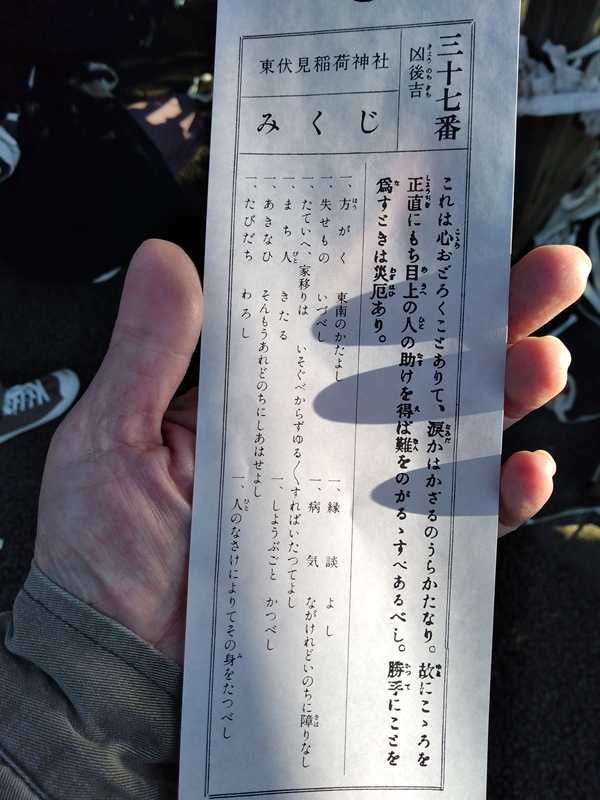 三十七番
凶後吉
東伏見稲荷神社
みくじ
これは心おどろくことありて、淚かはかざるのうらかたなり。故にこゝろを
正直にもち目上の人の助けを得ば難をのがるゝすべあるべし。勝手にことを
爲すときは災厄あり。
一、方がく 東南のかたよし
一、失せもの いづべし
一、たていへ、家移りは いそぐべからずゆる〳〵すればいたつてよし
一、まち人 きたる
一、あきなひ そんもうあれどのちにしあはせよし
一、たびだち わろし
一、縁談 よし
一、病気 ながけれどいのちに障りなし
一、しようぶごと かつべし
一、人のなさけによりてその身をたつべし